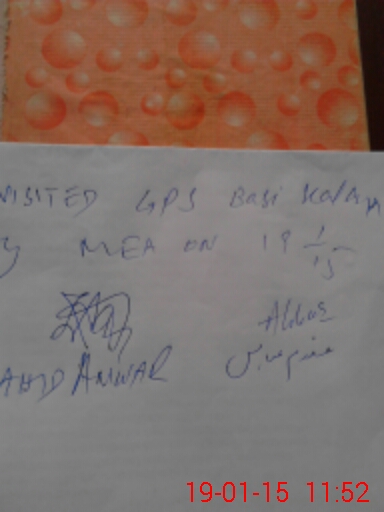 VISITED GPS Basi Kalan
by MEA ON 19/1/15
Abbas
AHID ANWAR
19-01-15 11:52